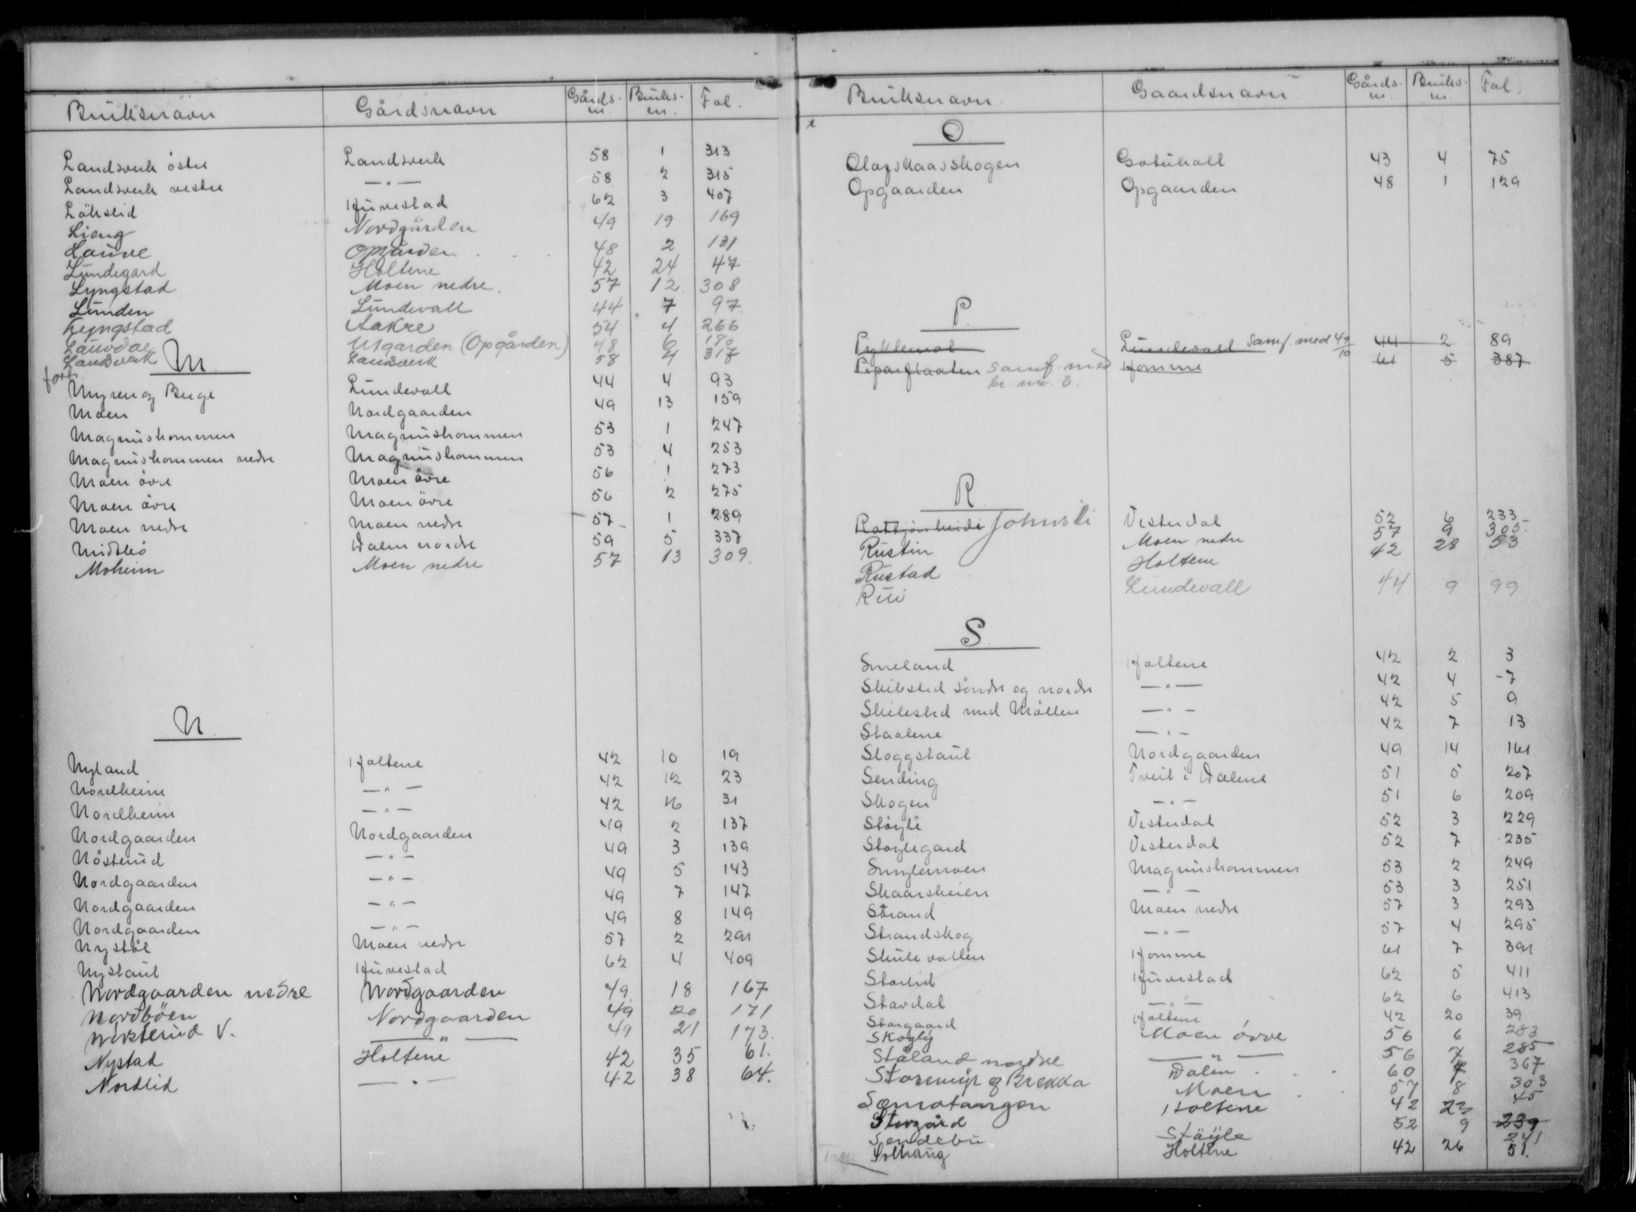 Bruksnavn Gårdsnavn Gårds-nr. Bruks-nr. Fol.
Landsverk östre Landsverk 58 1 313
Landsverk vestre —"— 58 2 315
Lökslid Huvestad 62 3 407
Lieng Nordgården 49 19 169
Lauve Opgården 48 2 131
Lundegard Holtene 42 24 47
Lyngstad Moen nedre. 57 12 308
Lunden Lundevall 44 7 97
Lyngstad Aakre 54 4 266
Lauvdal Utgarden (Opgården) 48 6 180
Landsverk Landsverk 58 4 317
M
Myren og Berge Lundevall 44 4 93
Moen Nordgaarden 49 13 159
Magnushommen Magnushommen 53 1 247
Magnushommen nedre Magnushommen 53 4 253
Moen övre Moen övre 56 1 273
Moen övre Moen övre 56 2 275
Moen nedre Moen nedre 57 1 289
Midtbö Dalen nordre 59 5 337
Moheim Moen nedre 57 13 309.
N
Nyland Holtene 42 10 19
Nordheim —"— 42 12 23
Nordheim —"— 42 16 31
Nordgaarden Nordgaarden 49 2 137
Nösterud —"— 49 3 139
Nordgaarden —"— 49 5 143
Nordgaarden —"— 49 7 147
Nordgaarden —"— 49 8 149
Nystöl Moen nedre 57 2 291
Nystaul Huvestad 62 4 409
Nordgaarden nedre Nordgaarden 49 18 167
Nordböen Nordgaarden 49 20 171
Nörsterud V. —"— 49 21 173.
Nystad Holtene 42 35 61.
Nordlid —"— 42 38 64.
Bruksnavn Gaardsnavn Gårds-nr. Bruks-nr. Fol.
O.
Olafskaasskogen Gotuholt 43 4 75
Opgaarden Opgaarden 48 1 129
P.
Lundevall samf. med 42/10 44 2 89
Piparflaaten samf. med br. nr. 3. Homme 61 5 387
R.
Rottjönheide Johnsli Vesterdal 52 6 233
Rustin Moen nedre 57 9 305.
Rustad Holtene 42 28 53
Rui Lundevall 44 9 99
S.
Smeland Holtene 42 2 3
Skibsted söndre og nordre —"— 42 4 7
Skibsted med Möllen —"— 42 5 9
Staalene —"— 42 7 13
Sloggstaul Nordgaarden 49 14 161
Sending Tveit i Dalene 51 5 207
Skogen —"— 51 6 209
Stöyle Vesterdal 52 3 229
Stoylegard Vesterdal 52 7 235
Smylemoen Magnushommen 53 2 249
Skaarsheien —"— 53 3 251
Strand Moen nedre 57 3 293
Strandskog —"— 57 4 295
Skule vollen Homme 61 7 391
Storlid Huvestad 62 5 411
Stavdal —"— 62 6 413
Storgaard Holtene 42 20 39
Skogly Moen övre 56 6 283
Ståland nordre —"— 56 7 285
Storemyr og Brekka Dalen 60 4 367
Semotangen Moen 57 8 303
Storgård Holtene 42 23 45
Sendebu Stöyle 52 9 239 241
Solhaug Holtene 42 26 51.